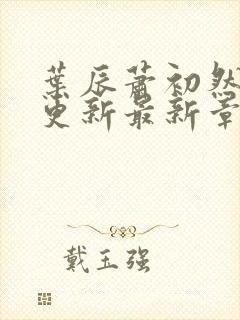 葉辰蕭初然
更新最新章
戴玉强